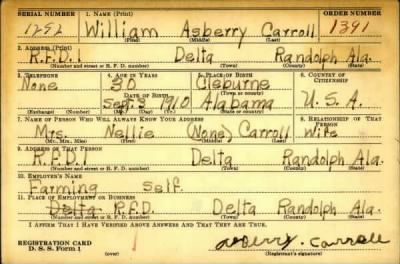 SERIAL NUMBER 1. NAME (Print) ORDER NUMBER
1292 William Asberry Carroll 1391
(First) (Middle) (Last)
2. ADDRESS (Print)
R.F.D.1 Delta Randolph Ala.
(Number and street or R. F. D. number) (Town) (County) (State)
3. TELEPHONE 4. AGE IN YEARS 5. PLACE OF BIRTH 6. COUNTRY OF CITIZENSHIP
None 30 Cleburne
DATE OF BIRTH (Town or county)
Sept. 3 1910 Alabama U.S.A.
(Exchange) (Number) (Mo.) (Day) (Yr.) (State or country)
7. NAME OF PERSON WHO WILL ALWAYS KNOW YOUR ADDRESS 8. RELATIONSHIP OF THAT PERSON
Mrs. Nellie (None) Carroll Wife
(Mr., Mrs., Miss) (First) (Middle) (Last)
9. ADDRESS OF THAT PERSON
R.F.D.1 Delta Randolph Ala.
(Number and street or R. F. D. number) (Town) (County) (State)
10. EMPLOYER'S NAME
Farming Self.
11. PLACE OF EMPLOYMENT OR BUSINESS
Delta R.F.D. Delta Randolph Ala.
(Number and street or R. F. D. number) (Town) (County) (State)
I AFFIRM THAT I HAVE VERIFIED ABOVE ANSWERS AND THAT THEY ARE TRUE.
REGISTRATION CARD
D. S. S. Form 1 (over) asberry. carroll
(Registrant's signature)